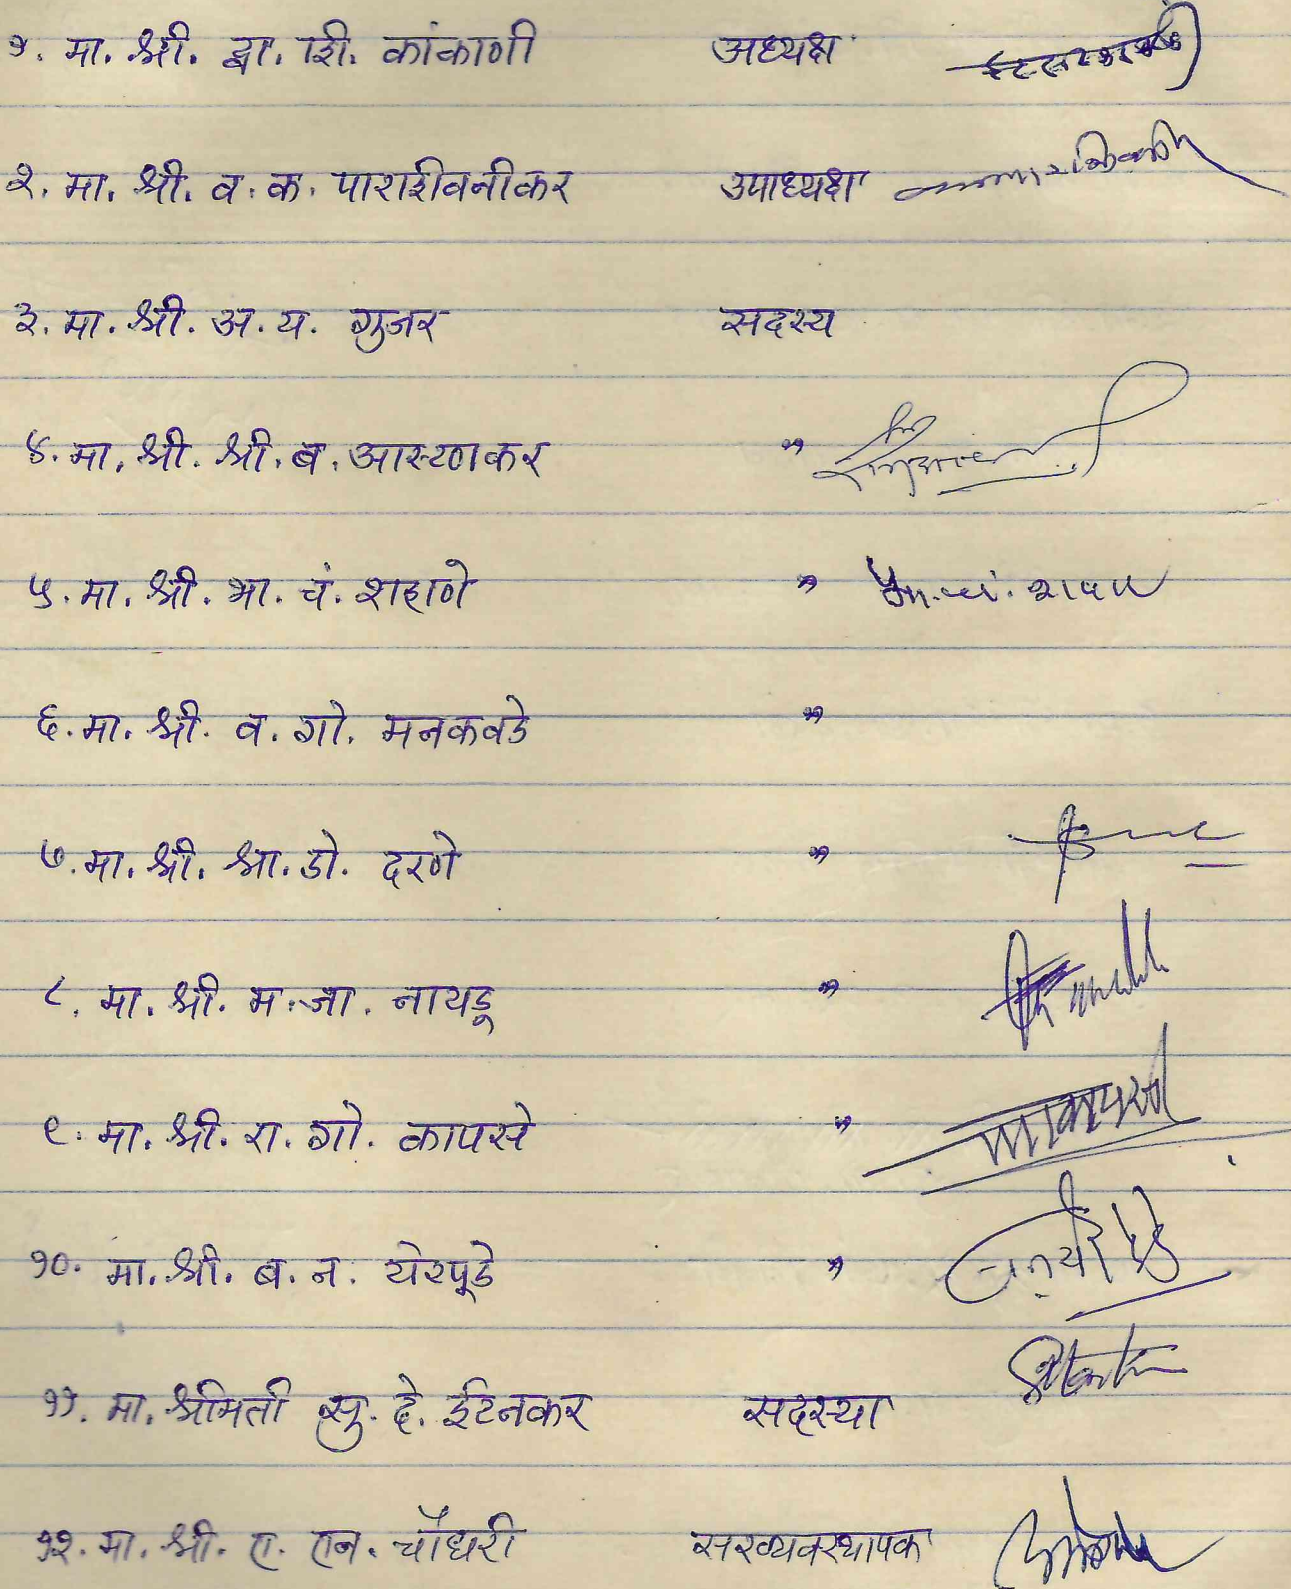 १. मा. श्री. द्वा. शि. कांकाणी अध्यक्ष
२. मा. श्री. व. क. पाराशीवनीकर उपाध्यक्ष
३. मा. श्री. अ. य. गुजर सदस्य
४. मा. श्री. श्री. ब. आस्टणकर "
५. मा. श्री. भा. चं. शहाणे " भा. चं. शहाणे
६. मा. श्री. व. गो. मनकवडे "
७. मा. श्री. श्रा. डो. दरणे "
८. मा. श्री. म. जा. नायडू "
९. मा. श्री. रा. गो. कापसे "
१०. मा. श्री. ब. न. येरपूडे "
११. मा. श्रीमती सु. दे. ईटनकर सदस्या
१२. मा. श्री. ए. एन. चौधरी सरव्यवस्थापक